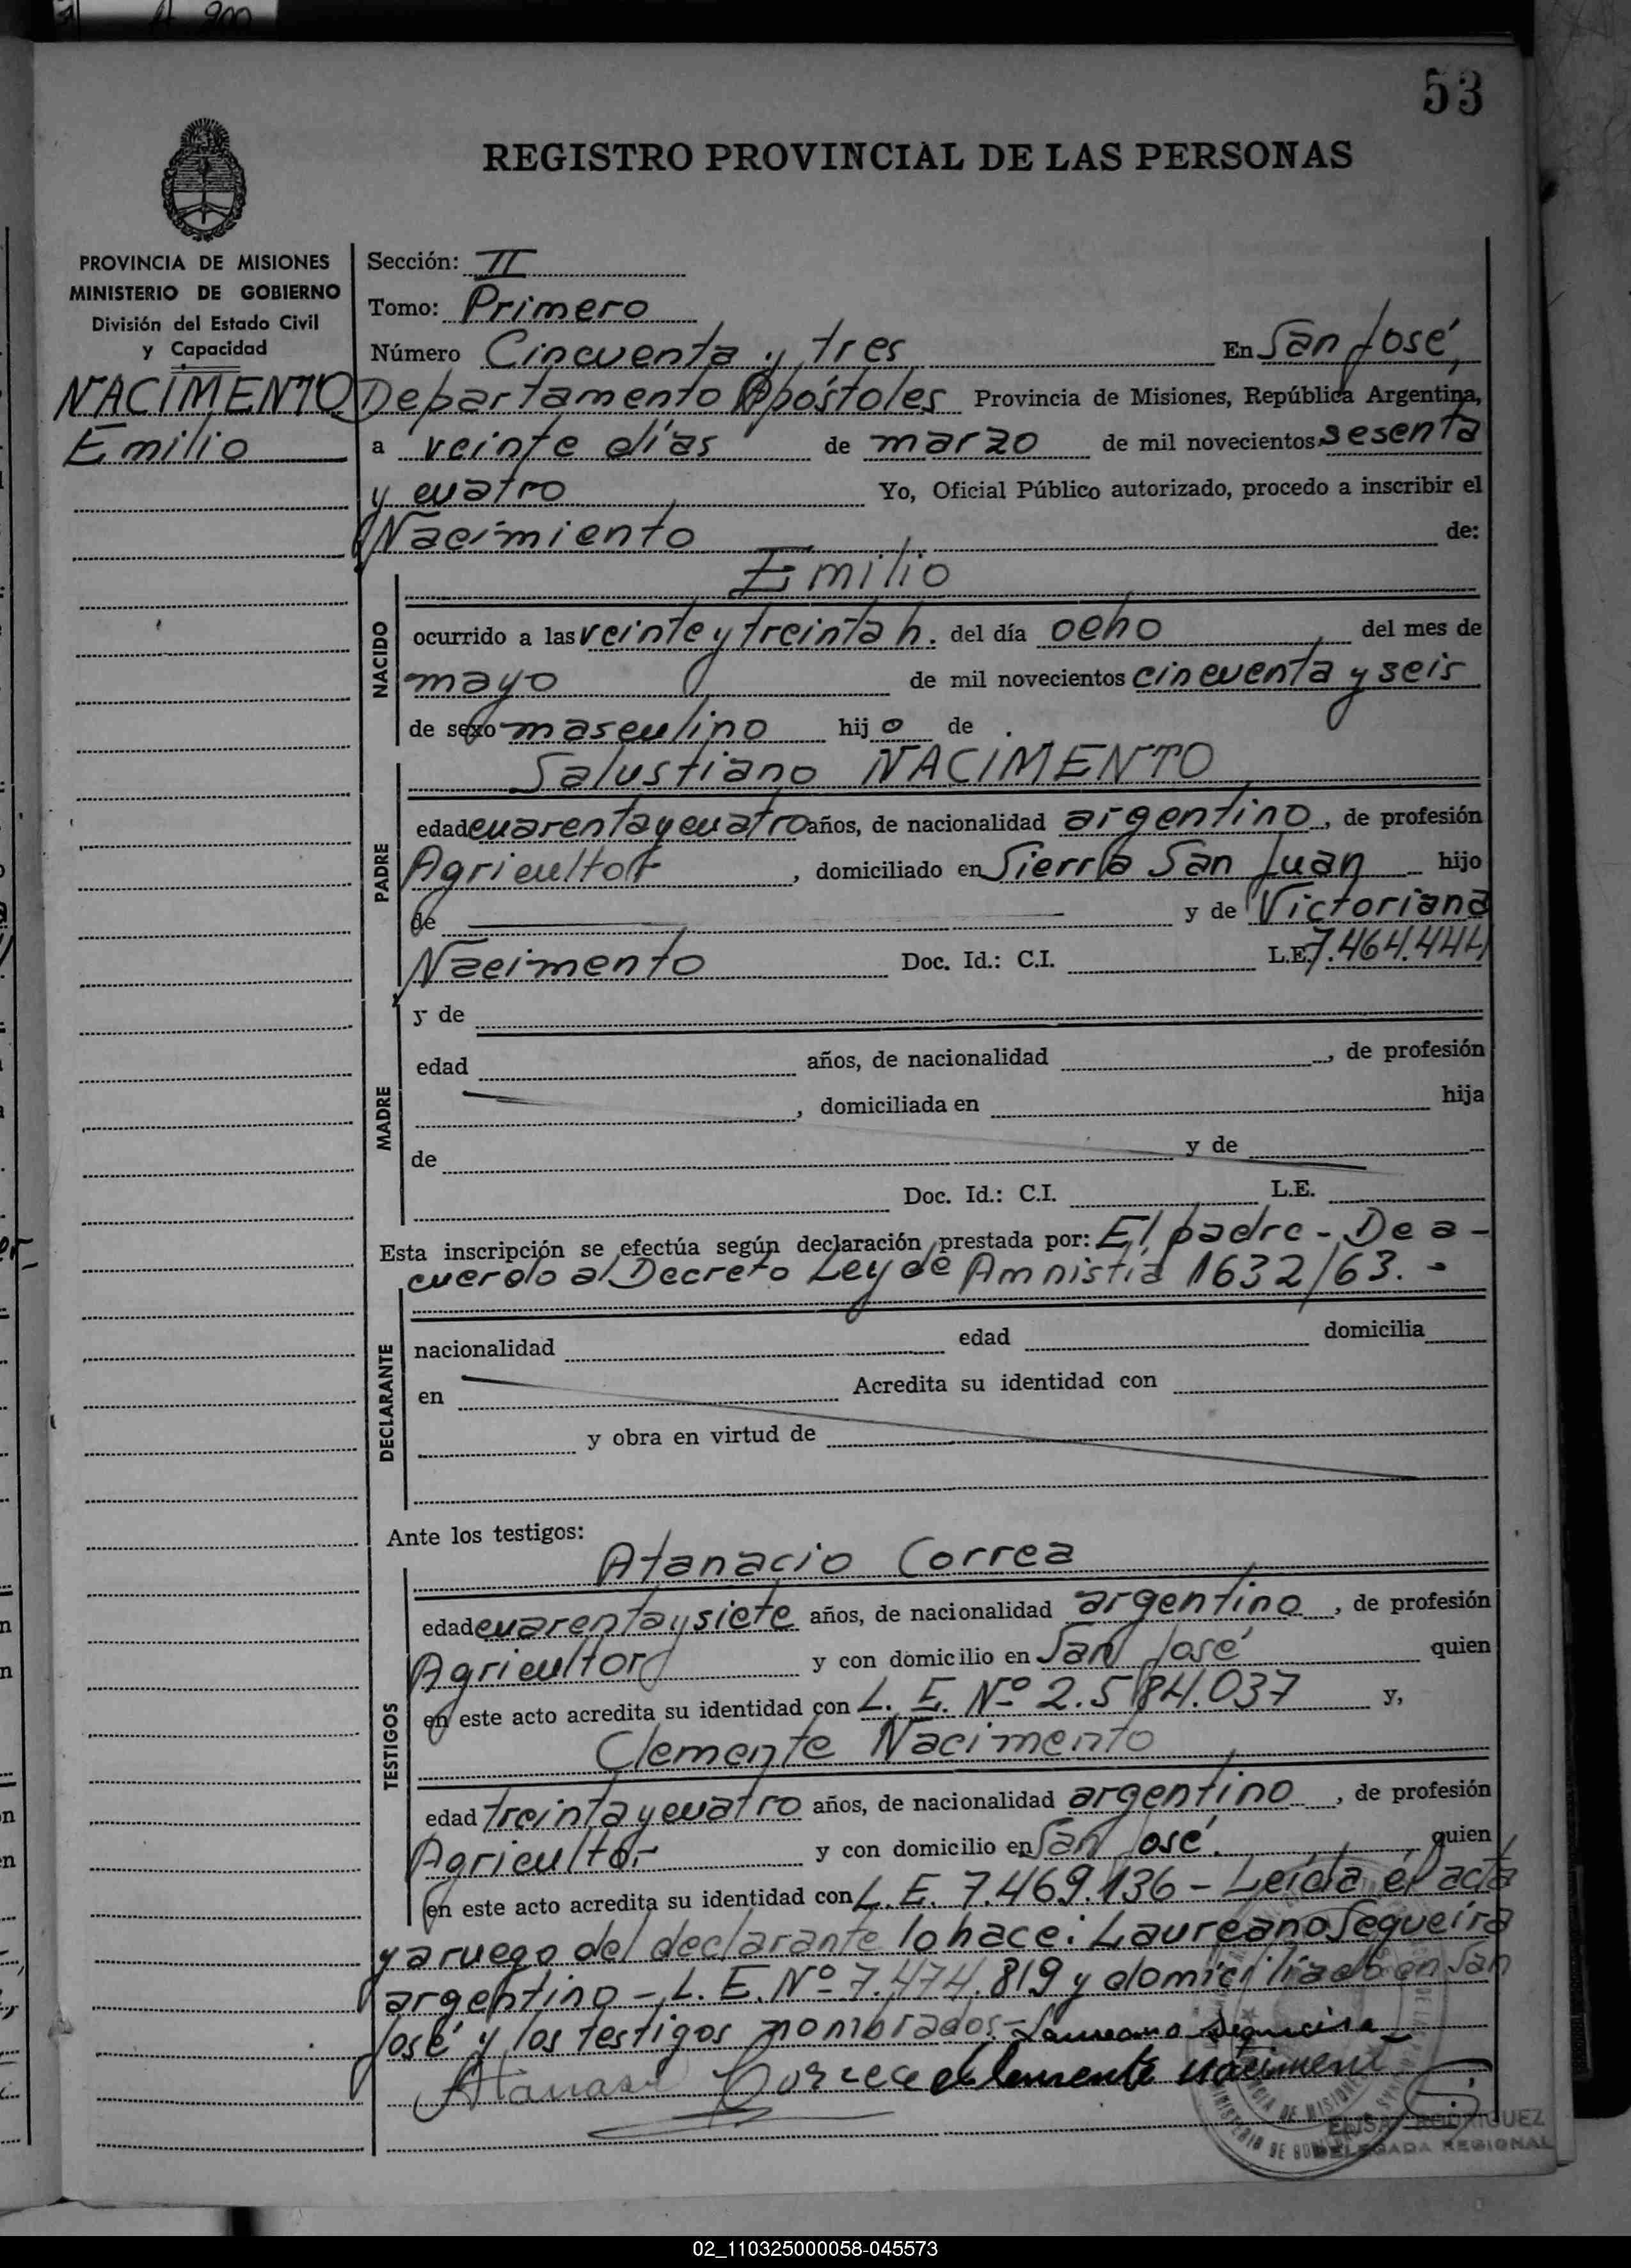 53
REGISTRO PROVINCIAL DE LAS PERSONAS
PROVINCIA DE MISIONES
MINISTERIO DE GOBIERNO
División del Estado Civil
y Capacidad
NACIMENTO
Emilio
Sección: II
Tomo: Primero
Número Cincuenta y tres En San José,
Departamento Apóstoles Provincia de Misiones, República Argentina,
a veinte días de marzo de mil novecientos sesenta
y cuatro Yo, Oficial Público autorizado, procedo a inscribir el
Nacimiento de:
Emilio
NACIDO
ocurrido a las veinte y treinta h. del día ocho del mes de
mayo de mil novecientos cincuenta y seis
de sexo masculino hijo de
Salustiano NACIMENTO
PADRE
edad cuarenta y cuatro años, de nacionalidad argentino, de profesión
Agricultor, domiciliado en Sierra San Juan hijo
de y de Victoriana
Nacimento Doc. Id.: C.I. L.E. 7.464.444
MADRE
y de
edad años, de nacionalidad , de profesión
, domiciliada en hija
de y de
Doc. Id.: C.I. L.E.
Esta inscripción se efectúa según declaración prestada por: El padre - De a-
cuerdo al Decreto Ley de Amnistía 1632/63.-
DECLARANTE
nacionalidad edad domicilia
en Acredita su identidad con
y obra en virtud de
Ante los testigos:
Atanacio Correa
TESTIGOS
edad cuarenta y siete años, de nacionalidad argentino, de profesión
Agricultor y con domicilio en San José quien
en este acto acredita su identidad con L. E. Nº 2.584.037 y,
Clemente Nacimento
edad treinta y cuatro años, de nacionalidad argentino, de profesión
Agricultor y con domicilio en San José. quien
en este acto acredita su identidad con L. E. 7.469.136 - Leída el acta
y a ruego del declarante lo hace: Laureano Sequeira
argentino - L. E. Nº 7.474.819 y domiciliado en San
José y los testigos nombrados.- Laureano Sequeira
Correa Clemente
DELEGADA REGIONAL
02_110325000058-045573